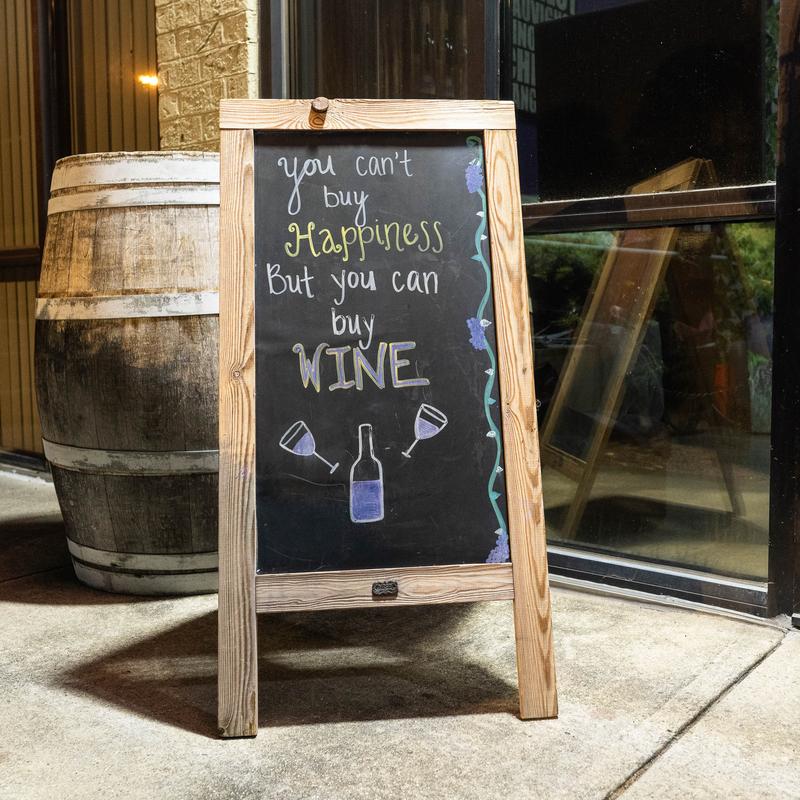 you can't
buy
Happiness
But you can
buy
WINE